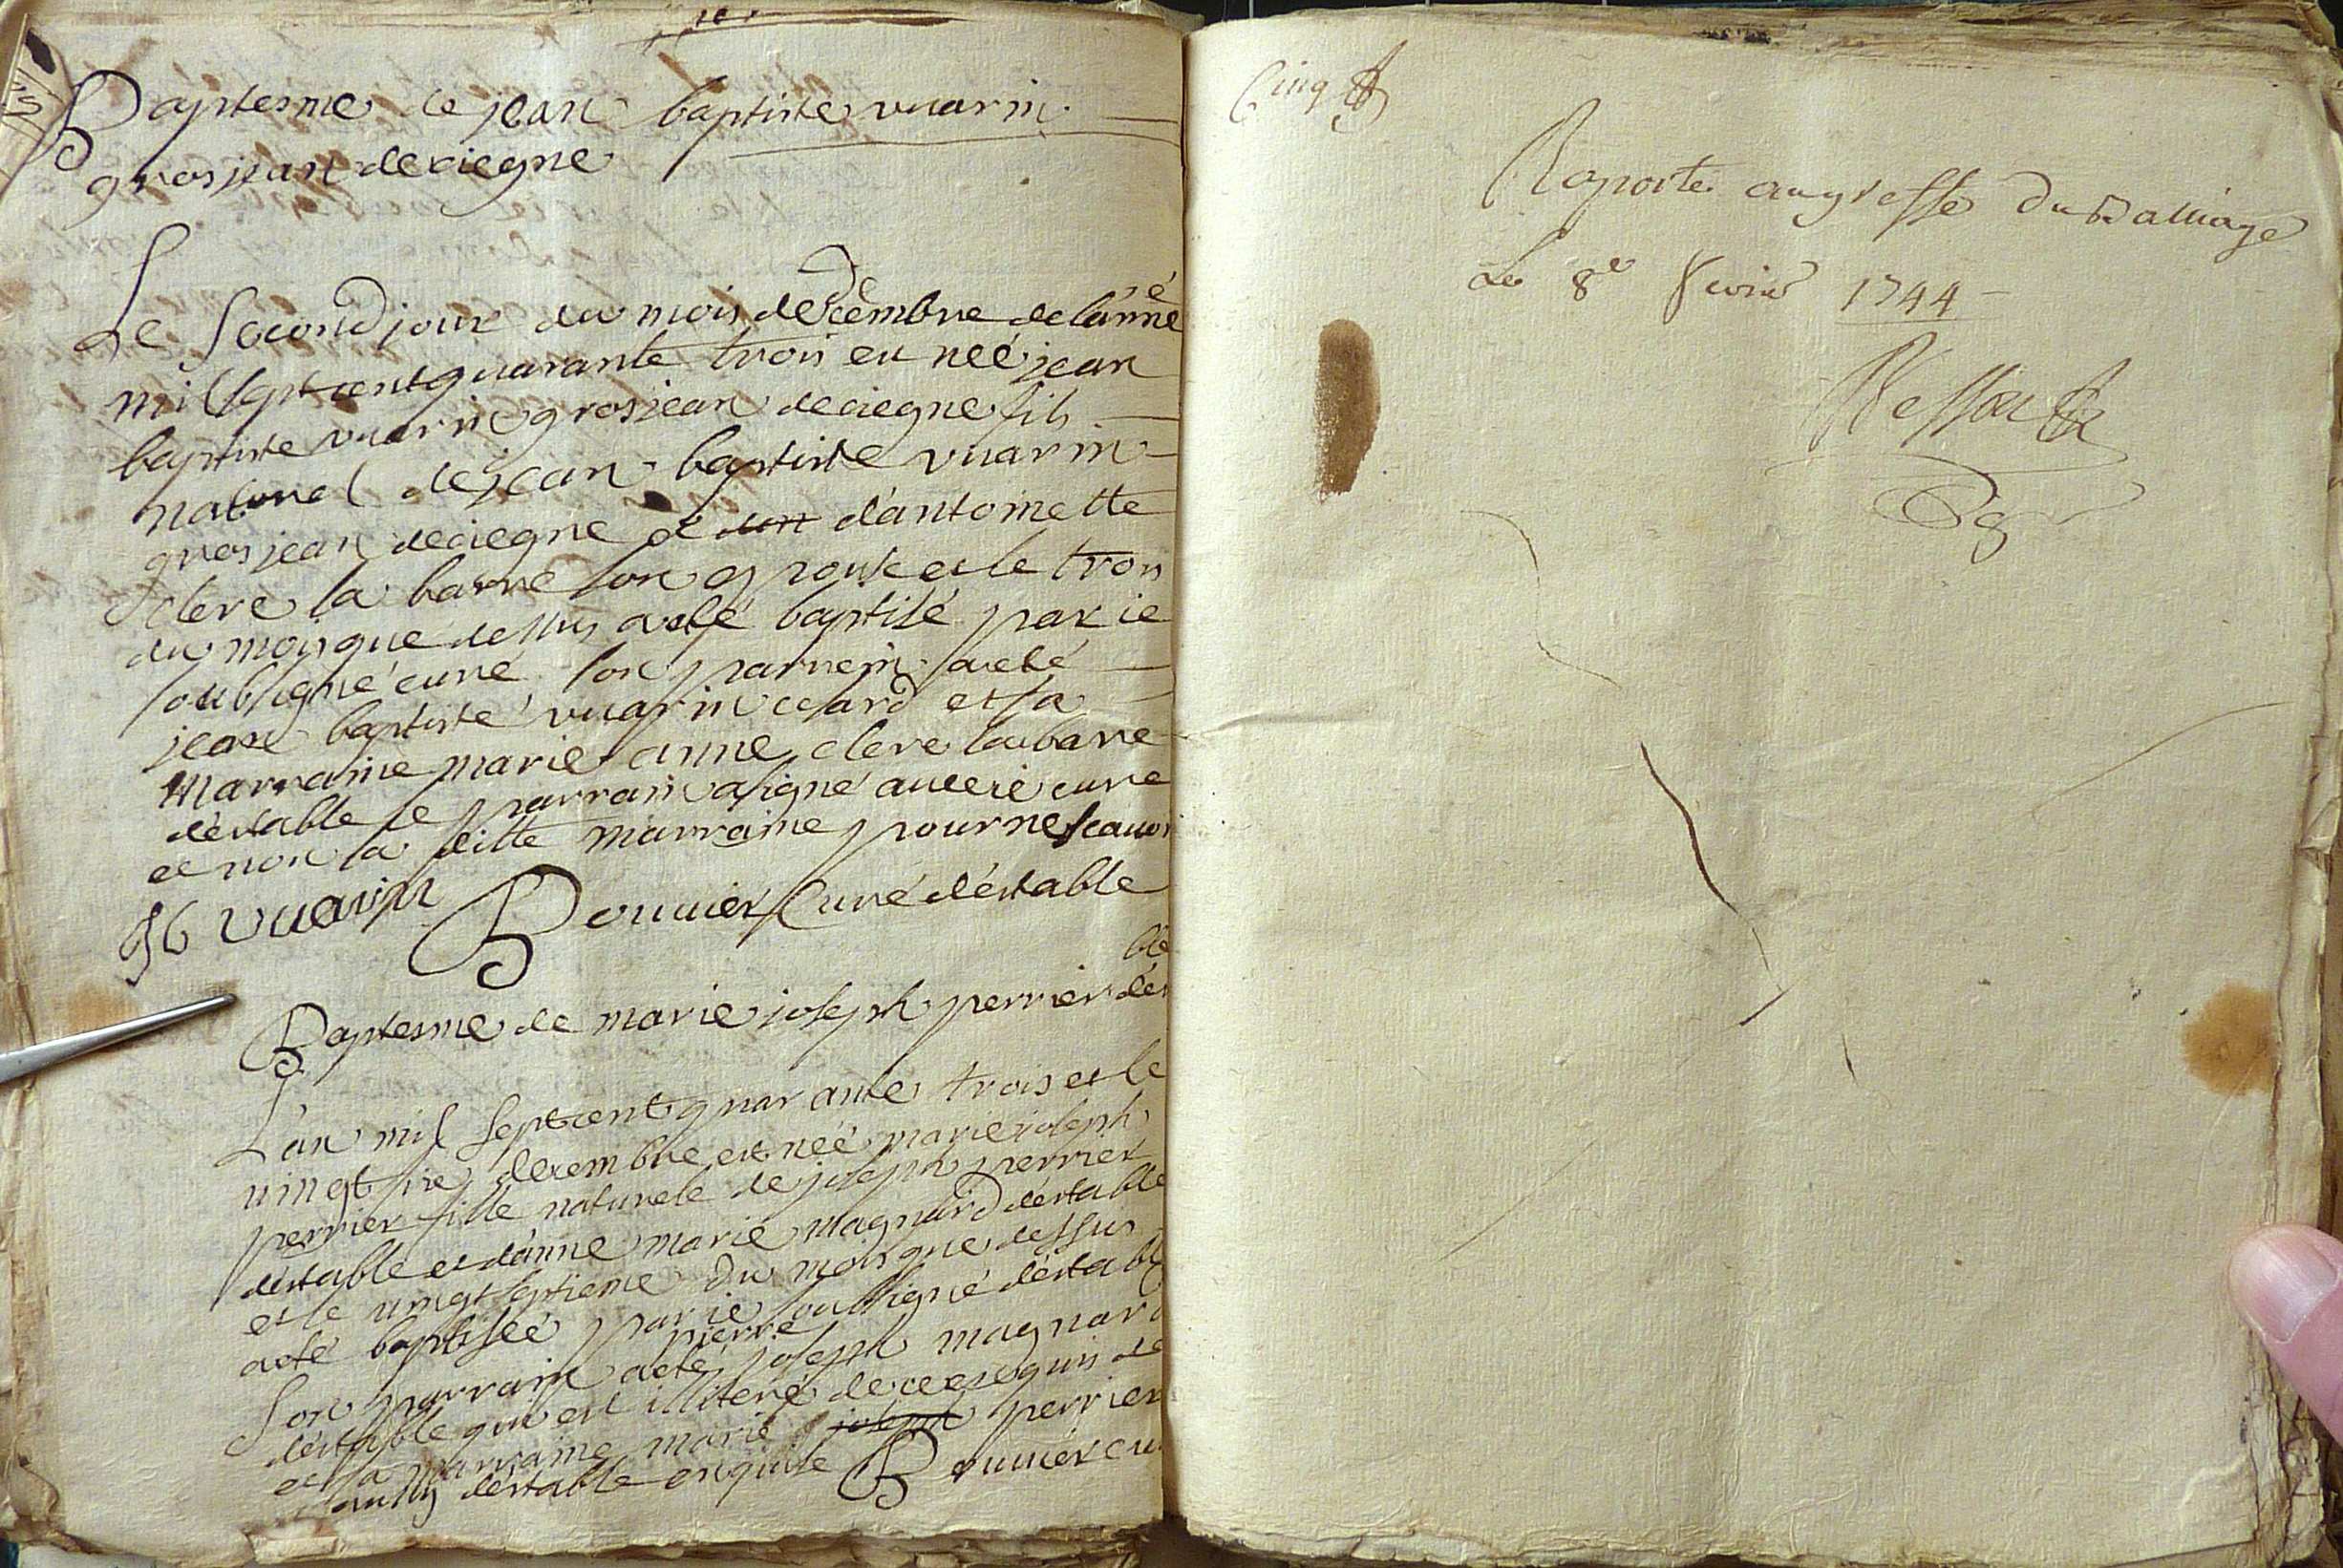 Baptesme de jean baptiste vuarin
grosjean deciegne
Le second jour du mois decembre de lanné
mil septcent quarante trois est néé jean
baptiste vuarin grosjean deciegne fils
naturel de jean baptiste vuarin
grosjean deciegne et d'antoinette
clere la barre son epouse et le trois
du moisque dessus a eté baptisé par ie
soubsigné curé son parrein a eté
jean baptiste vuarin et sa
Marraine marie anne clere labarre
déstable le parrain a signé avec ie curé
et non la ditte marraine pour ne scavoir
JB vuarin Bouuier Curé déstable
Baptesme de marie joseph perrier desta
ble
L'an mil septcent quarante trois et le
uingt decembre est néé marie joseph
perrier fille naturele de joseph perrier
déstable et d'anne marie magnard déstable
et le uingt septieme du moisque dessus
a eté baptiséé par ie soubsigné déstable
Son parrain a eté pierre joseph magnard
déstable qui est illiteré de ce enquis et
et sa marraine marie joseph perrier
aussy déstable enquise Bouuier cu
Cinq
Raporté au greffe du Balliage
Le 8e fevrier 1744